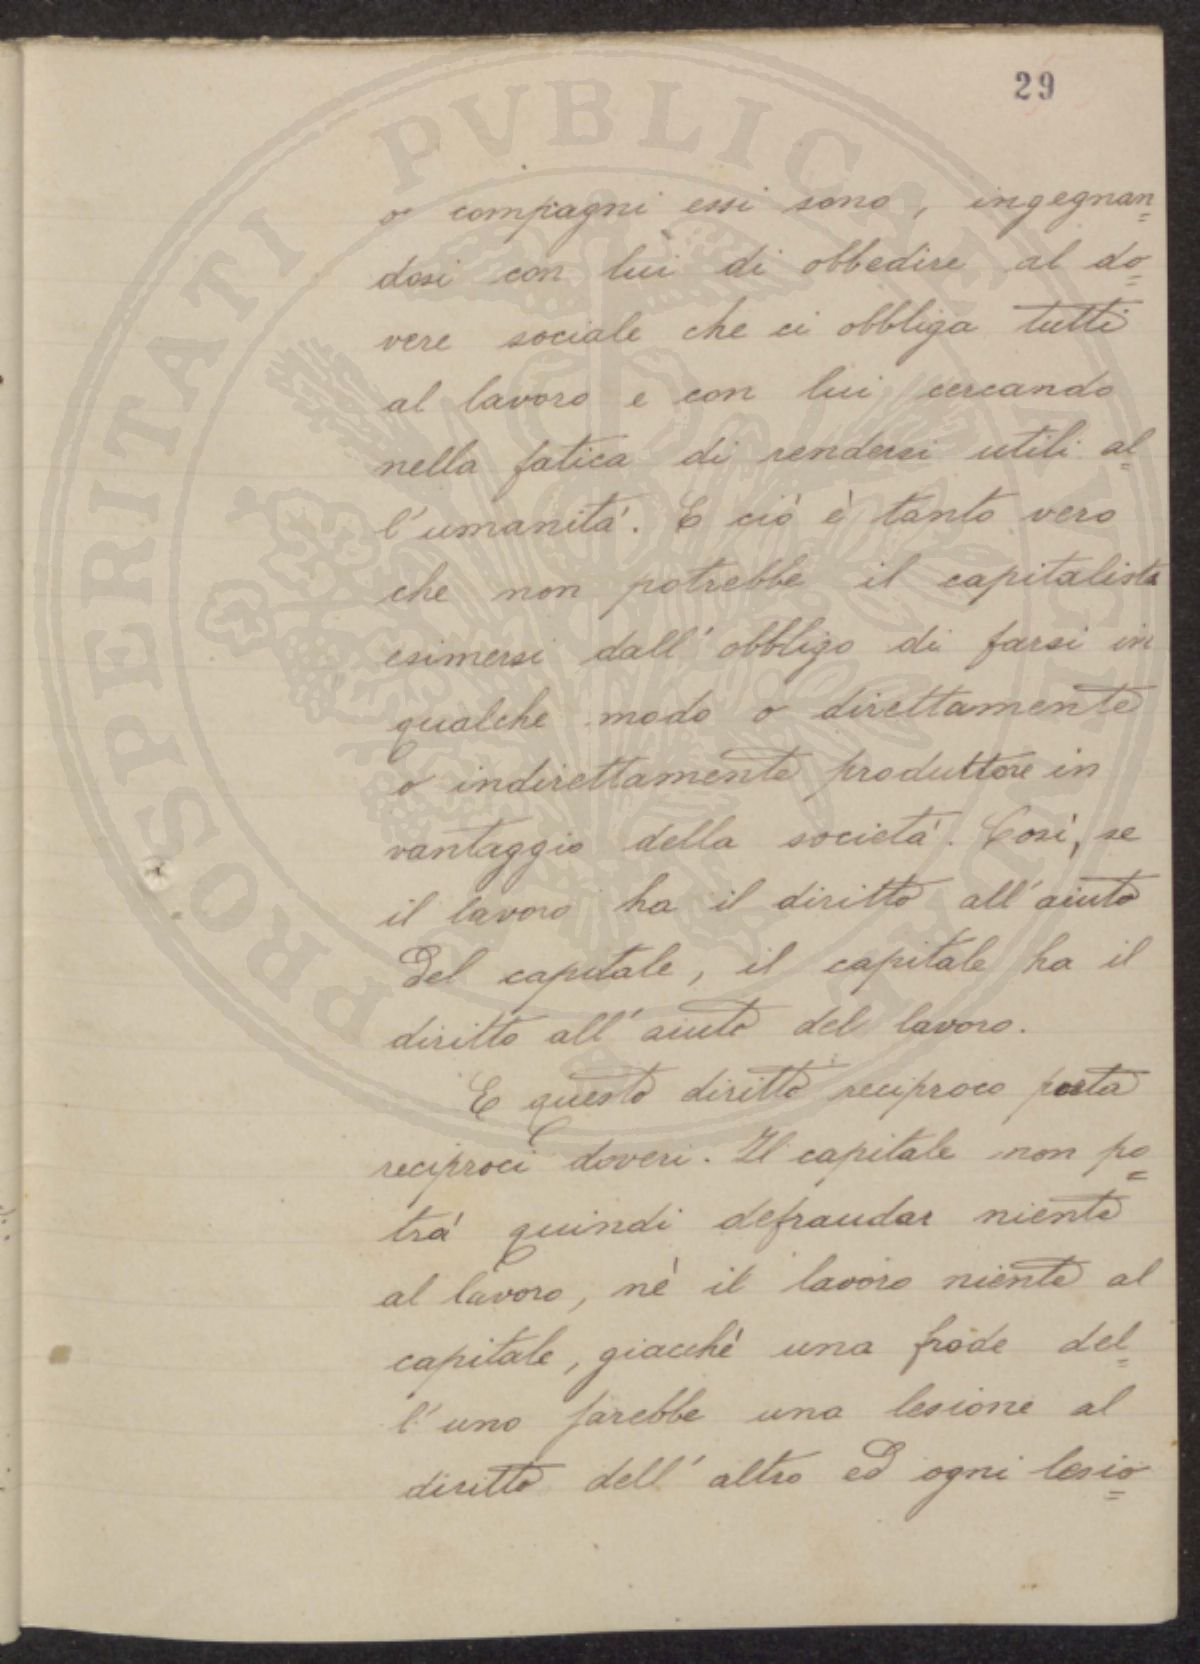 29
o compagni essi sono, ingegnan=
dosi con lui di obbedire al do=
vere sociale che ci obbliga tutti
al lavoro e con lui cercando
nella fatica di rendersi utili al=
l'umanità. E ciò è tanto vero
che non potrebbe il capitalista
esimersi dall'obbligo di farsi in
qualche modo o direttamente
o indirettamente produttore in
vantaggio della società. Così, se
il lavoro ha il diritto all'aiuto
del capitale, il capitale ha il
diritto all'aiuto del lavoro.
E questo diritto reciproco porta
reciproci doveri. Il capitale non po=
trà quindi defraudar niente
al lavoro, nè il lavoro niente al
capitale, giacchè una frode del=
l'uno farebbe una lesione al
diritto dell'altro ed ogni lesio=
PROSPERITATI PVBLICAE AVGENDAE